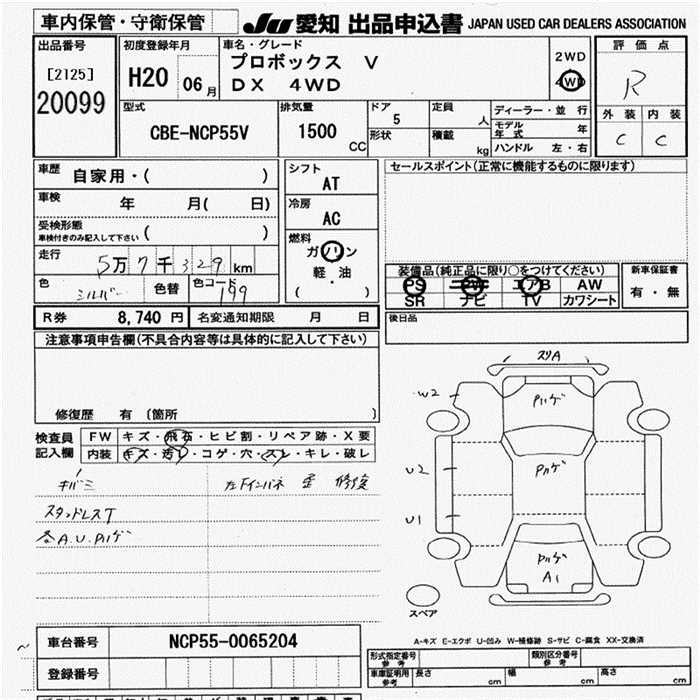 車内保管・守衛保管
JU 愛知 出品申込書 JAPAN USED CAR DEALERS ASSOCIATION
出品番号
[2125]
20099
初度登録年月
H20 06月
車名・グレード
プロボックス V
DX 4WD
2WD
4WD
評価点
R
外装 内装
C C
型式
CBE-NCP55V
排気量
1500 CC
ドア
5
形状
定員
人
積載
kg
ディーラー・並行
モデル年式 年
ハンドル 左・右
車歴 自家用・( )
車検 年 月( 日)
受検形態
車検付きのみ記入して下さい ( )
走行 5万7千329km
色 シルバー 色替 色コード 199
シフト
AT
冷房
AC
燃料
ガソリン
軽・油
( )
セールスポイント(正常に機能するものに限ります)
装備品(純正品に限り○をつけてください)
PS PW エアB AW
SR ナビ TV カワシート
新車保証書
有・無
R券 8,740円 名変通知期限 月 日
後日品
注意事項申告欄(不具合内容等は具体的に記入して下さい)
修復歴 有 〔箇所 〕
検査員記入欄
FW キズ・飛石・ヒビ割・リペア跡・X要
内装 キズ・汚れ・コゲ・穴・スレ・キレ・破レ
キバミ
スタッドレスT
各A.U.Pハゲ
左Fインパネ 歪 修復
スリA
W2
Pハゲ
U2
Pハゲ
U1
Pハゲ
A1
スペア
A-キズ E-エクボ U-凹み W-補修跡 S-サビ C-腐食 XX-交換済
車台番号 NCP55-0065204
登録番号
形式指定番号
参考
類別区分番号
参考
車庫証明用
参考
長さ cm 幅 cm 高さ cm